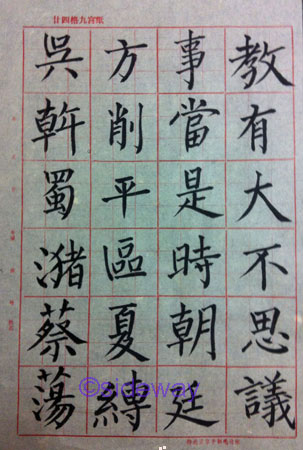 廿四格九宮紙
教有大不思議
事當是時朝廷
方削平區夏縛
吳斡蜀瀦蔡蕩
©sideway